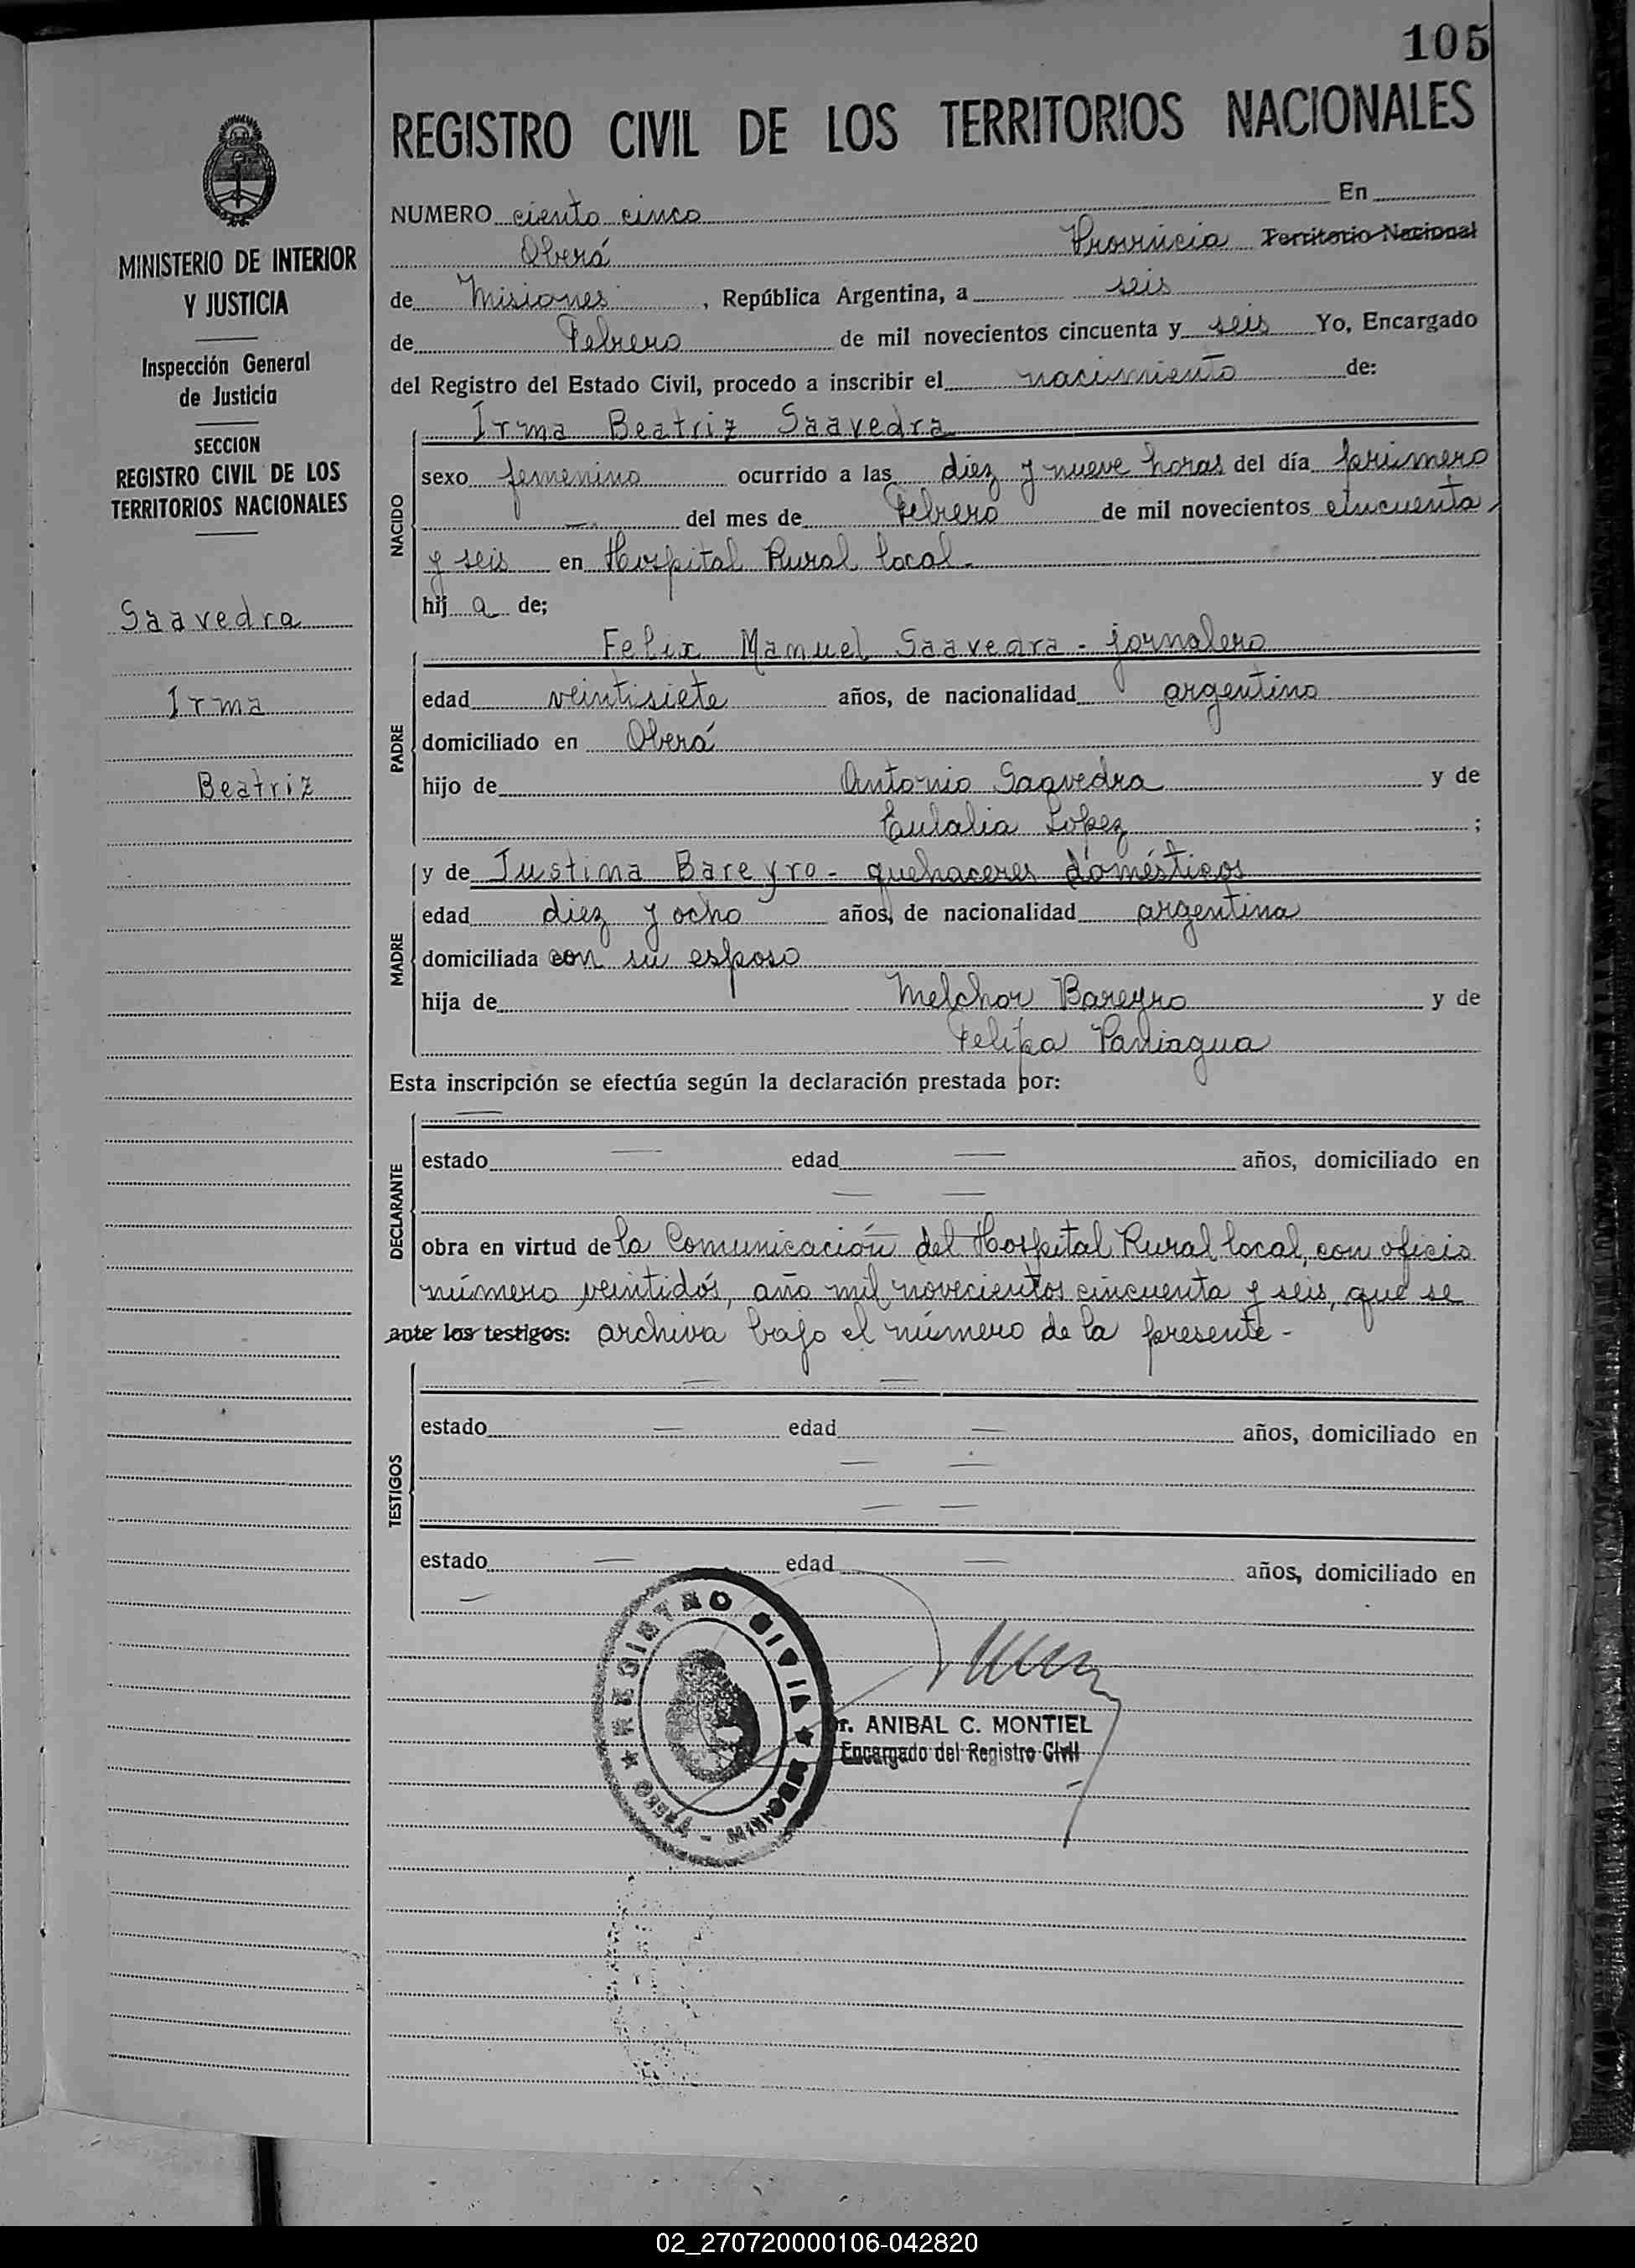 105
REGISTRO CIVIL DE LOS TERRITORIOS NACIONALES
MINISTERIO DE INTERIOR
Y JUSTICIA
Inspección General
de Justicia
SECCION
REGISTRO CIVIL DE LOS
TERRITORIOS NACIONALES
Saavedra
Irma
Beatriz
NUMERO ciento cinco En
Oberá Provincia Territorio Nacional
de Misiones , República Argentina, a seis
de Febrero de mil novecientos cincuenta y seis Yo, Encargado
del Registro del Estado Civil, procedo a inscribir el nacimiento de:
NACIDO
Irma Beatriz Saavedra
sexo femenino ocurrido a las diez y nueve horas del día primero
del mes de Febrero de mil novecientos cincuenta
y seis en Hospital Rural local.
hij a de;
PADRE
Felix Manuel Saavedra - jornalero
edad veintisiete años, de nacionalidad argentino
domiciliado en Oberá
hijo de Antonio Saavedra y de
Eulalia Lopez ;
y de Justina Bareyro - quehaceres domésticos
MADRE
edad diez y ocho años, de nacionalidad argentina
domiciliada con su esposo
hija de Melchor Bareyro y de
Felipa Paniagua
Esta inscripción se efectúa según la declaración prestada por:
DECLARANTE
estado edad años, domiciliado en
obra en virtud de la Comunicación del Hospital Rural local, con oficio
número veintidós, año mil novecientos cincuenta y seis, que se
ante los testigos: archiva bajo el número de la presente -
TESTIGOS
estado edad años, domiciliado en
estado edad años, domiciliado en
REGISTRO CIVIL
r. ANIBAL C. MONTIEL
Encargado del Registro Civil
02_270720000106-042820